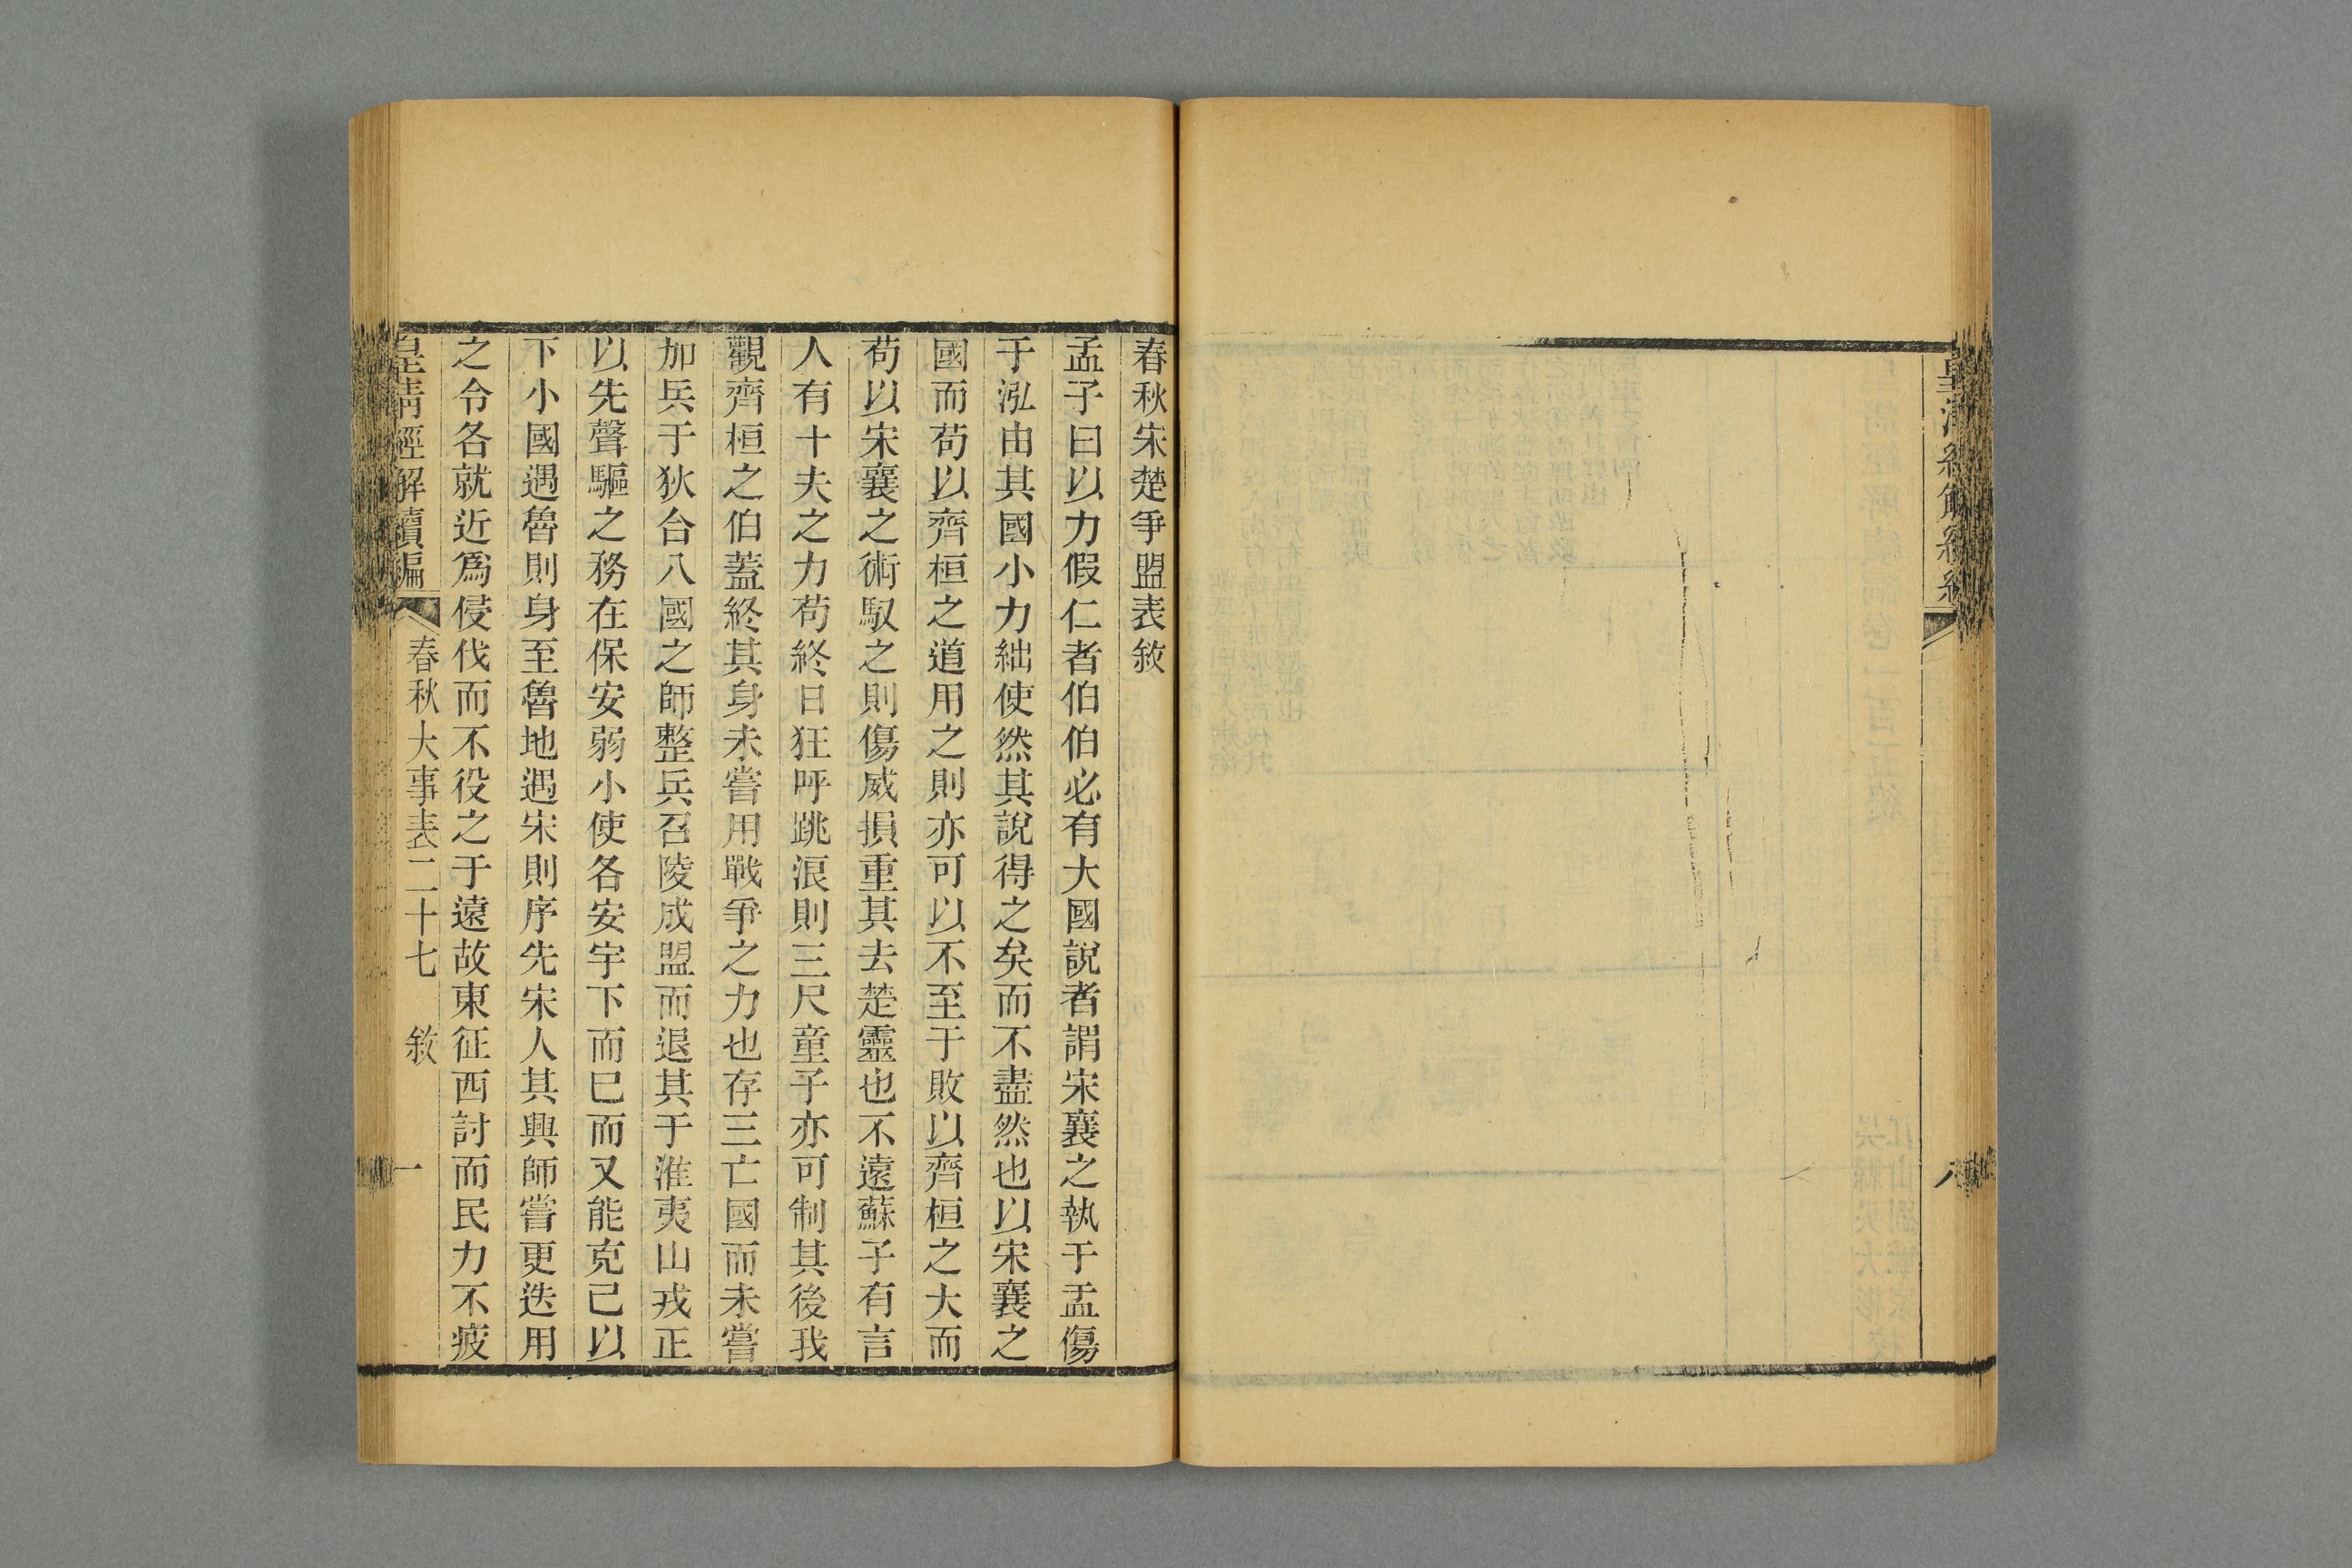 皇清經解續編
八
春秋宋楚爭盟表敘
孟子曰以力假仁者伯伯必有大國說者謂宋襄之執于盂傷
于泓由其國小力絀使然其說得之矣而不盡然也以宋襄之
國而苟以齊桓之道用之則亦可以不至于敗以齊桓之大而
苟以宋襄之術馭之則傷威損重其去楚靈也不遠蘇子有言
人有十夫之力苟終日狂呼跳浪則三尺童子亦可制其後我
觀齊桓之伯蓋終其身未嘗用戰爭之力也存三亡國而未嘗
加兵于狄合八國之師整兵召陵成盟而退其于淮夷山戎正
以先聲驅之務在保安弱小使各安宇下而已而又能克己以
下小國遇魯則身至魯地遇宋則序先宋人其興師嘗更迭用
之令各就近爲侵伐而不役之于遠故東征西討而民力不疲
皇清經解續編 春秋大事表二十七 敘 一